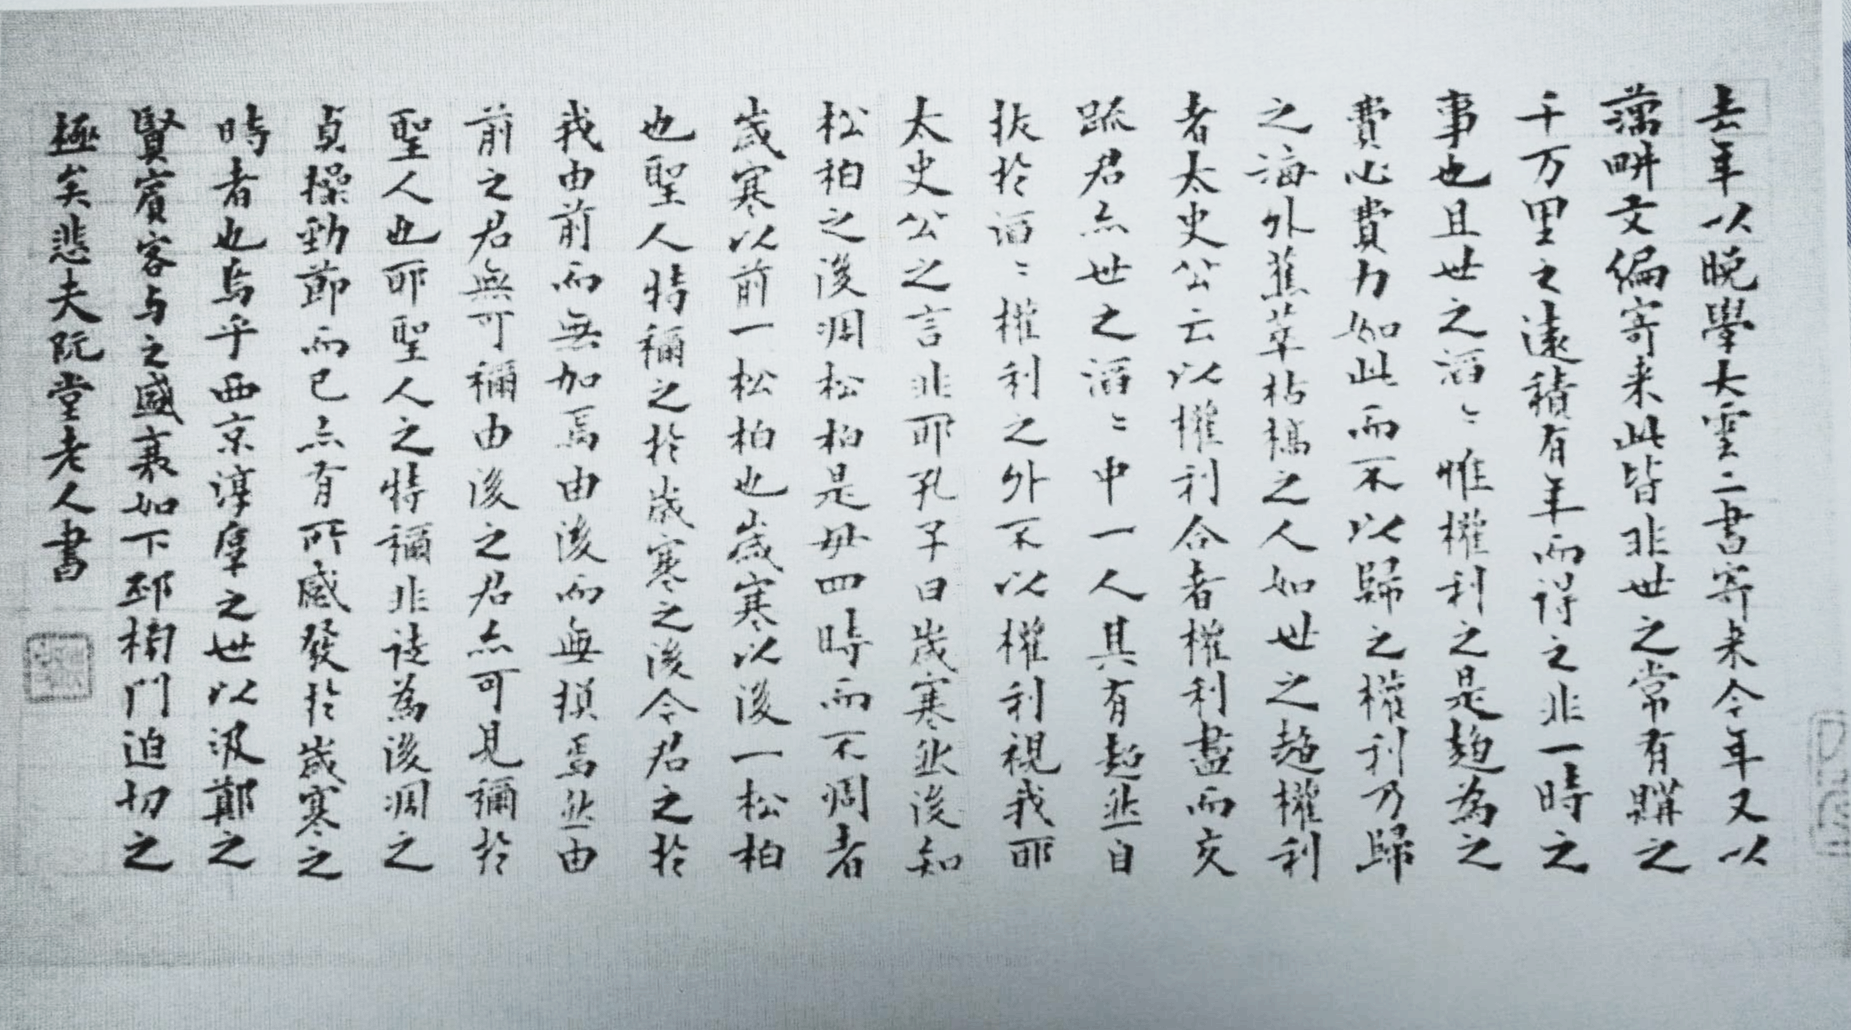 去年以晚學大雲二書寄来今年又以
藕畊文編寄来此皆非世之常有購之
千万里之遠積有年而得之非一時之
事也且世之滔〻惟權利之是趍為之
費心費力如此而不以歸之權利乃歸
之海外蕉萃枯槁之人如世之趍權利
者太史公云以權利合者權利盡而交
踈君亦世之滔〻中一人其有超然自
拔於滔〻權利之外不以權利視我耶
太史公之言非耶孔子曰歲寒然後知
松柏之後凋松柏是毋四時而不凋者
歲寒以前一松柏也歲寒以後一松柏
也聖人特稱之於歲寒之後今君之於
我由前而無加焉由後而無損焉然由
前之君無可稱由後之君亦可見稱於
聖人也耶聖人之特稱非徒為後凋之
貞操勁節而已亦有所感發於歲寒之
時者也烏乎西京淳厚之世以汲鄭之
賢賓客与之盛衰如下邳榜門迫切之
極矣悲夫阮堂老人書